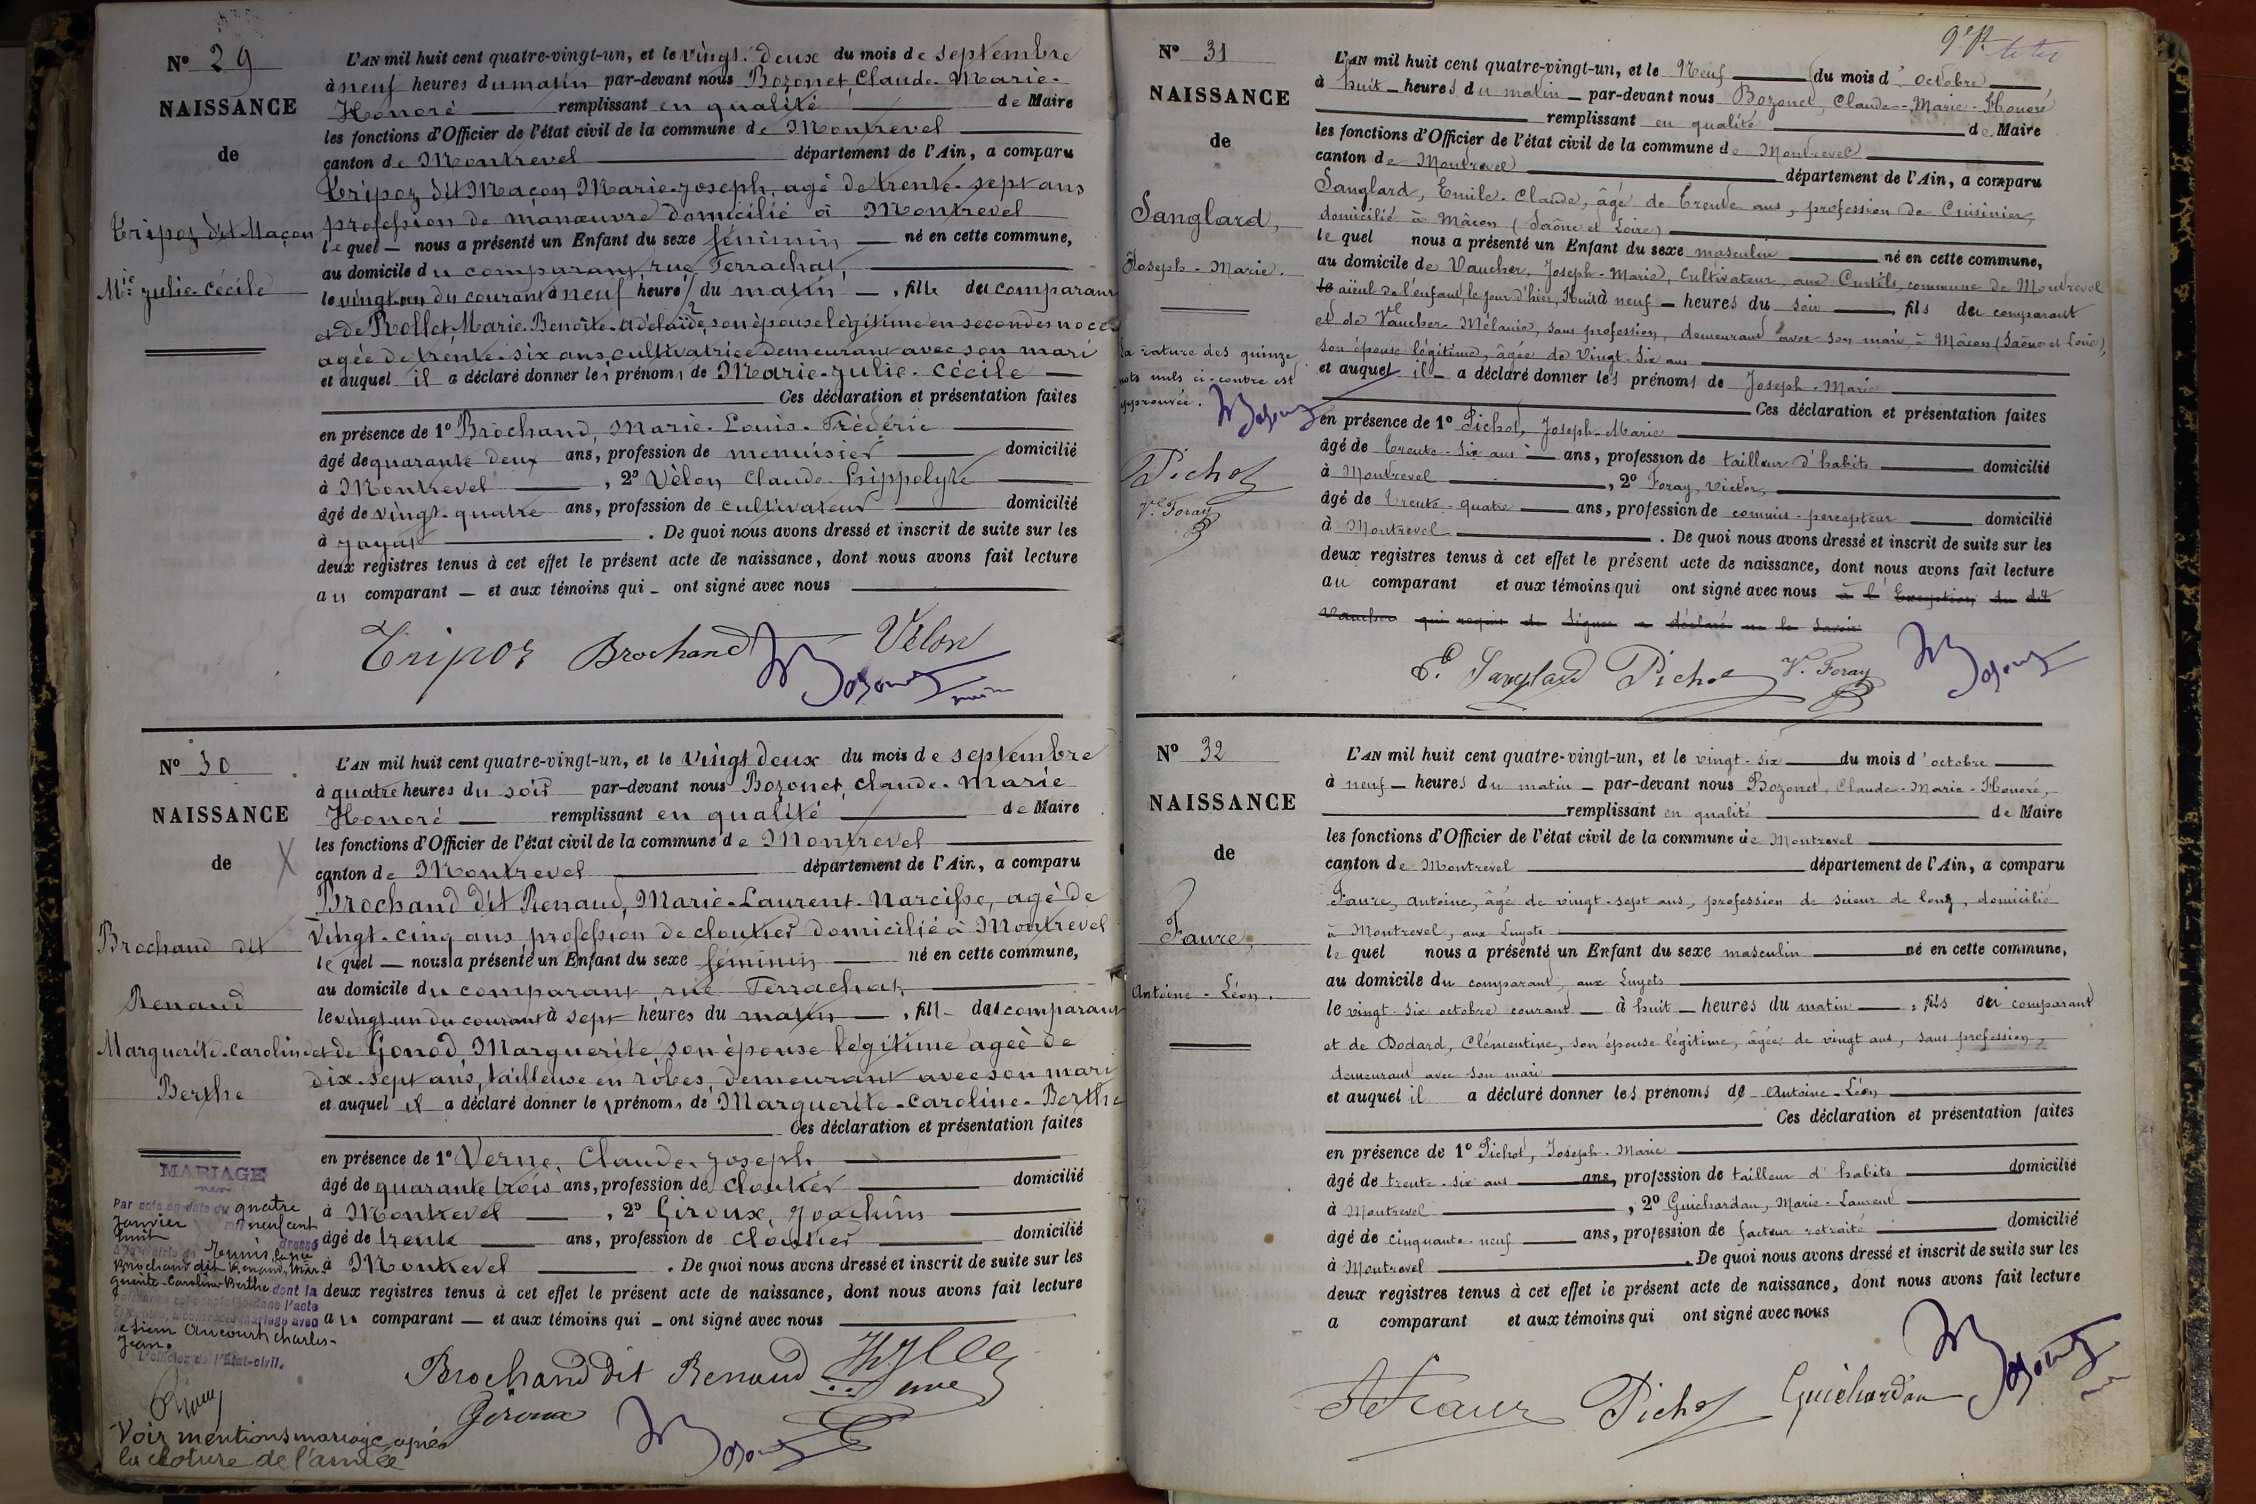 N° 29
NAISSANCE
de
Tripoz dit Maçon
Mie Julie-Cécile
L'AN mil huit cent quatre-vingt-un, et le vingt-deux du mois de septembre
à neuf heures du matin par-devant nous Bozonet, Claude-Marie-
Honoré remplissant en qualité de Maire
les fonctions d'Officier de l'état civil de la commune de Montrevel
canton de Montrevel département de l'Ain, a comparu
Tripoz dit Maçon Marie-Joseph, agé de trente-sept ans
profession de manœuvre domicilié à Montrevel
lequel nous a présenté un Enfant du sexe féminin né en cette commune,
au domicile du comparant, rue Ferrachat,
le vingt-un du courant à neuf heures du matin, fille du comparant
et de Rollet Marie-Benoîte-Adélaïde, son épouse légitime en secondes noces
agée de trente-six ans, cultivatrice demeurant avec son mari
et auquel il a déclaré donner les prénoms de Marie-Julie-Cécile
Ces déclaration et présentation faites
en présence de 1° Brochand, Marie-Louis-Frédéric
âgé de quarante deux ans, profession de menuisier domicilié
à Montrevel, 2° Vélon Claude-Hippolyte
âgé de vingt-quatre ans, profession de cultivateur domicilié
à Jayat. De quoi nous avons dressé et inscrit de suite sur les
deux registres tenus à cet effet le présent acte de naissance, dont nous avons fait lecture
au comparant et aux témoins qui ont signé avec nous
Tripoz Brochand Vélon
Bozonet
maire
N° 30
NAISSANCE
de
X
Brochand dit
Renaud
Marguerite-Caroline
Berthe
L'AN mil huit cent quatre-vingt-un, et le vingt deux du mois de septembre
à quatre heures du soir par-devant nous Bozonet, Claude-Marie
Honoré remplissant en qualité de Maire
les fonctions d'Officier de l'état civil de la commune de Montrevel
canton de Montrevel département de l'Ain, a comparu
Brochand dit Renaud, Marie-Laurent-Narcisse, agé de
vingt-cinq ans profession de cloutier domicilié à Montrevel
lequel nous a présenté un Enfant du sexe féminin né en cette commune,
au domicile du comparant rue Ferrachat,
le vingt-un du courant à sept heures du matin, fille du comparant
et de Gonod Marguerite, son épouse légitime agée de
dix-sept ans, tailleuse en robes, demeurant avec son mari
et auquel il a déclaré donner les prénoms de Marguerite-Caroline-Berthe
Ces déclaration et présentation faites
en présence de 1° Verne, Claude-Joseph
âgé de quarante trois ans, profession de cloutier domicilié
à Montrevel, 2° Giroux, Joachim
âgé de trente ans, profession de cloutier domicilié
à Montrevel. De quoi nous avons dressé et inscrit de suite sur les
deux registres tenus à cet effet le présent acte de naissance, dont nous avons fait lecture
au comparant et aux témoins qui ont signé avec nous
Brochand dit Renaud Verne
Giroux
Bozonet
MARIAGE
Par acte en date du quatre
Janvier mil neuf cent
huit dressé
Tunis la née
Brochand dit Renaud, Mar-
guerite-Caroline-Berthe dont la
l'acte
mariage avec
le sieur Aucourt Charles-
Jean.
L'officier de l'Etat-civil.
Voir mentions mariage après
la cloture de l'année
9e ft
N° 31
NAISSANCE
de
Sanglard,
Joseph-Marie.
La rature des quinze
mots nuls ci-contre est
approuvée.
Bozonet
Pichot
V. Foray
L'AN mil huit cent quatre-vingt-un, et le Neuf du mois d'octobre
à huit heures du matin par-devant nous Bozonet, Claude-Marie-Honoré
remplissant en qualité de Maire
les fonctions d'Officier de l'état civil de la commune de Montrevel
canton de Montrevel département de l'Ain, a comparu
Sanglard, Emile-Claude, âgé de trente ans, profession de Cuisinier,
domicilié à Mâcon (Saône et Loire)
lequel nous a présenté un Enfant du sexe masculin né en cette commune,
au domicile de Vaucher, Joseph-Marie, cultivateur, aux Curtils, commune de Montrevel
le aïeul de l'enfant, le jour d'hier, Huit à neuf heures du soir, fils du comparant
et de Vaucher Mélanie, sans profession, demeurant avec son mari, à Mâcon (Saône et Loire),
son épouse légitime, âgée de vingt-six ans
et auquel il a déclaré donner les prénoms de Joseph-Marie
Ces déclaration et présentation faites
en présence de 1° Pichot, Joseph-Marie
âgé de trente-six ans ans, profession de tailleur d'habits domicilié
à Montrevel, 2° Foray, Victor,
âgé de trente-quatre ans, profession de commis-percepteur domicilié
à Montrevel. De quoi nous avons dressé et inscrit de suite sur les
deux registres tenus à cet effet le présent acte de naissance, dont nous avons fait lecture
au comparant et aux témoins qui ont signé avec nous à l'Exception du dit
Vaucher qui requis de signer a déclaré ne le savoir
E. Sanglard Pichot V. Foray
Bozonet
N° 32
NAISSANCE
de
Faure,
Antoine-Léon.
L'AN mil huit cent quatre-vingt-un, et le vingt-six du mois d'octobre
à neuf heures du matin par-devant nous Bozonet, Claude-Marie-Honoré,
remplissant en qualité de Maire
les fonctions d'Officier de l'état civil de la commune de Montrevel
canton de Montrevel département de l'Ain, a comparu
Faure, Antoine, âgé de vingt-sept ans, profession de scieur de long, domicilié
à Montrevel, aux Luyets
lequel nous a présenté un Enfant du sexe masculin né en cette commune,
au domicile du comparant, aux Luyets
le vingt-six octobre courant à huit heures du matin, fils du comparant
et de Bodard, Clémentine, son épouse légitime, âgée de vingt ans, sans profession,
demeurant avec son mari
et auquel il a déclaré donner les prénoms de Antoine-Léon
Ces déclaration et présentation faites
en présence de 1° Pichot, Joseph-Marie
âgé de trente-six ans ans, profession de tailleur d'habits domicilié
à Montrevel, 2° Guichardan, Marie-Laurent
âgé de cinquante-neuf ans, profession de facteur retraité domicilié
à Montrevel. De quoi nous avons dressé et inscrit de suite sur les
deux registres tenus à cet effet le présent acte de naissance, dont nous avons fait lecture
a comparant et aux témoins qui ont signé avec nous
A Faure Pichot Guichardan
Bozonet